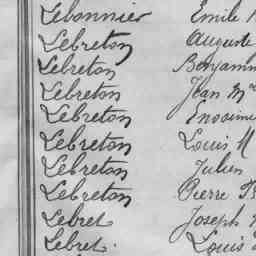 Lebonnier Emile
Lebreton Auguste
Lebreton Benjamin
Lebreton Jean M
Lebreton Enosime
Lebreton Louis M
Lebreton Julien
Lebreton Pierre
Lebret Joseph
Lebret. Louis